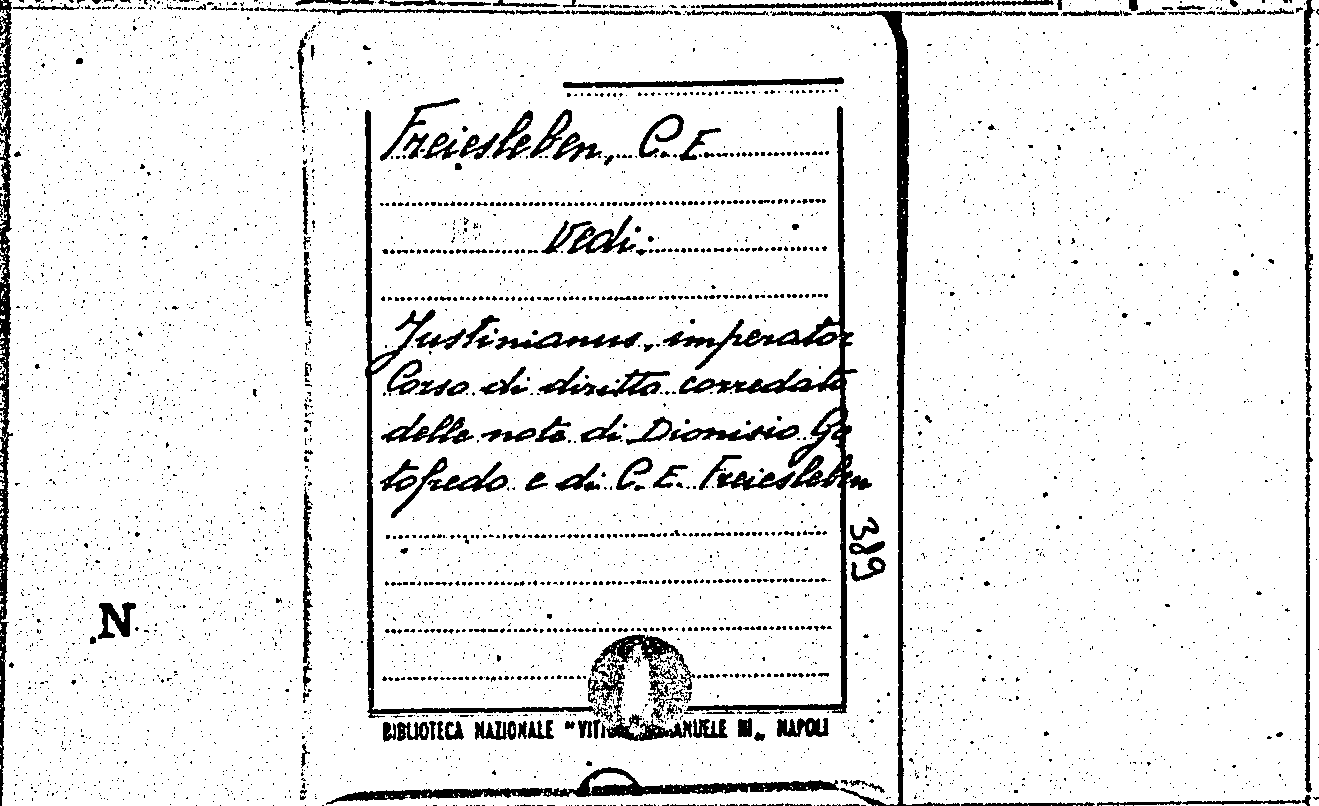 Freiesleben, C. E.
Vedi:
Justinianus, imperator
Corso di diritto corredato
delle note di Dionisio Go
tofredo e di C. E. Freiesleben
389
N
BIBLIOTECA NAZIONALE "VITTORIO EMANUELE III" NAPOLI